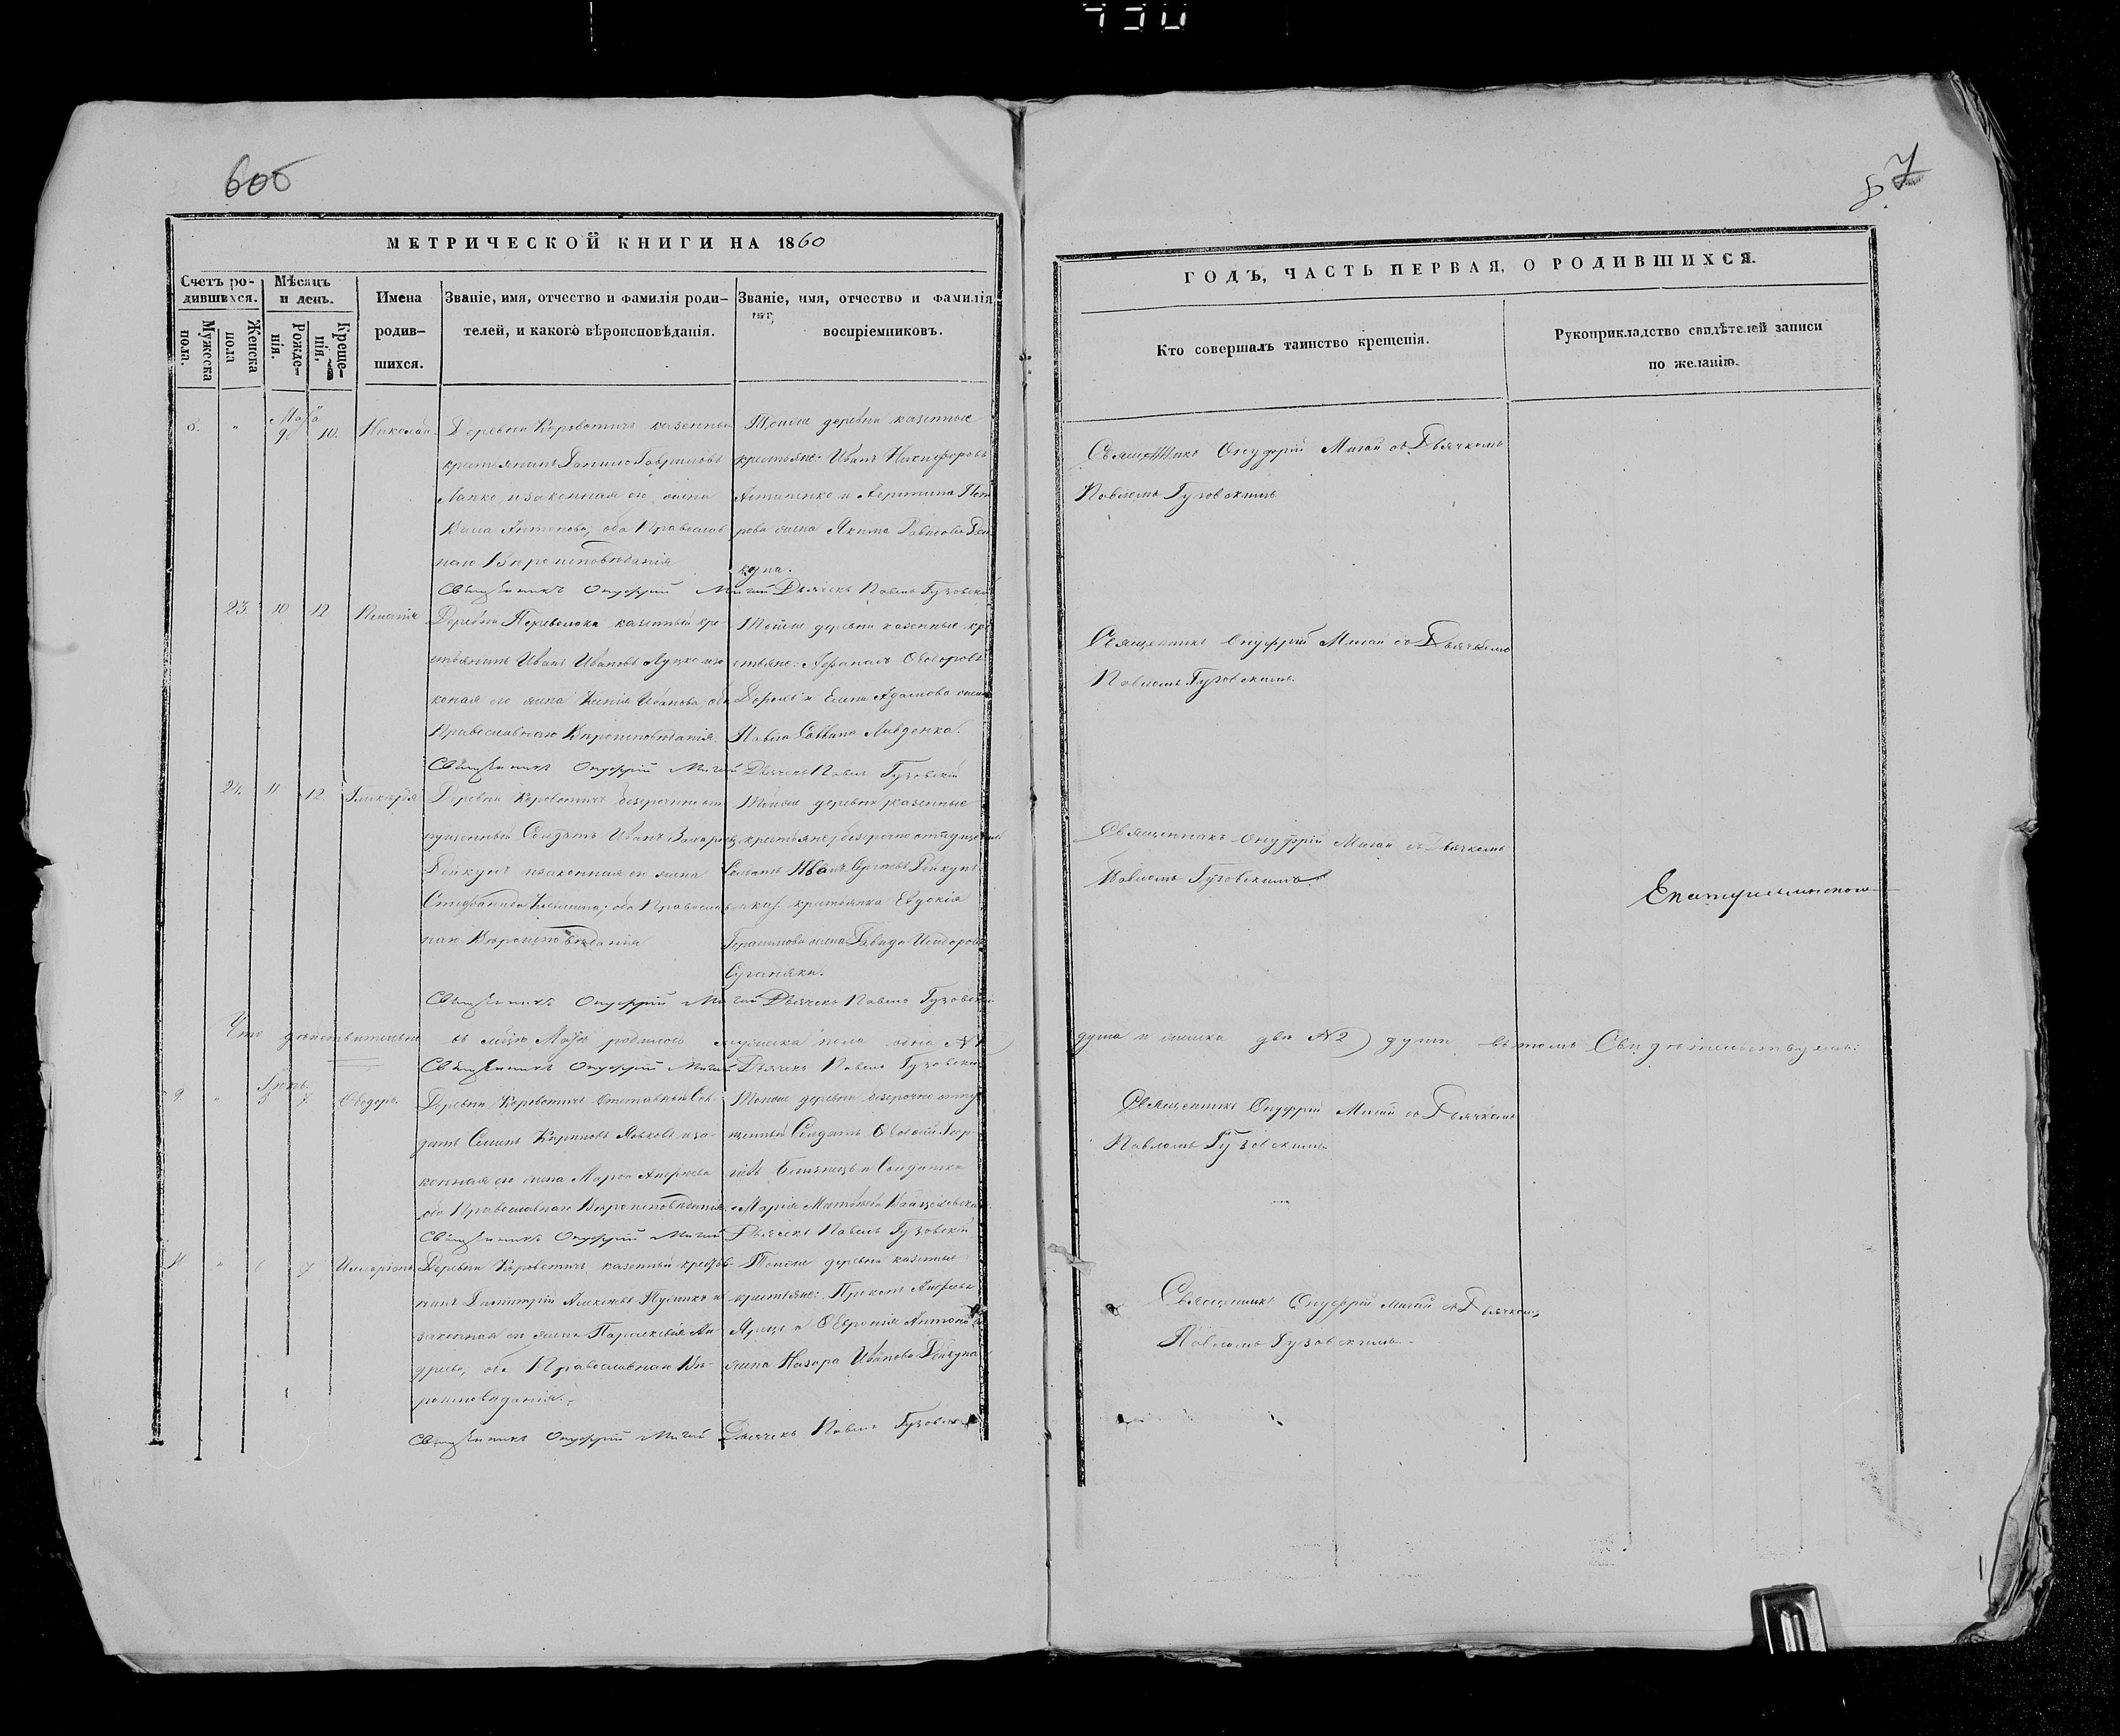 6об
7
МЕТРИЧЕСКОЙ КНИГИ НА 1860
Счетъ ро-
дившихся.
Мужеска
пола.
Женска
пола
Мѣсяцъ
и день.
Рожде-
нія.
Креще-
нія,
Имена
родив-
шихся.
Званіе, имя, отчество и фамилія роди-
телей, и какого вѣроисповѣданія.
Званіе, имя, отчество и фамилія
воспріемниковъ.
Маія
8. " 9 10. Николай
Деревни Коровотичъ казенный
крестьянинъ Данило Гавриловъ
Лапко изаконная его жена
Антонова; оба Православ
наго Вѣроисповѣданія
Тойже деревни казенные
крестьяне: Иванъ Никифоровъ
и Пет
рова жена Якима Давидова Дей
куна.
Священникъ Онуфрій Мигай Дьячекъ Павелъ Гузовскій
23. 10 12
Деревни Переволока казенный кре
стьянинъ Иванъ Ивановъ Луцко иза
коная его жена Ксенія Иванова, оба
Православнаго Вѣроисповѣданія
Тойже деревни казенные кре
стьяне: Афанасъ Ѳеодоровъ
и Елена Адамова жена
Павла
Священникъ Онуфрій Мигай Дьячекъ Павелъ Гузовскій
24. 11 12. Гликерія
Деревни Коровотичъ безсрочно от
пущенный Солдатъ Иванъ Захаровъ
Дейкунъ изаконная его жена
Стефанида; оба Православ
наго Вѣроисповѣданія
Тойже деревни казенные
крестьяне безсрочно отпущенный
Солдатъ Иванъ Сергѣевъ Дейкунъ
и каз. крестьянка Евдокія
Герасимова жена Давида Исидорова
Священникъ Онуфрій Мигай Дьячекъ Павелъ Гузовскій
Что дѣйствительно въ мѣсяцѣ Маѣ родилось мужеска пола одна №1
Священникъ Онуфрій Мигай Дьячекъ Павелъ Гузовскій
Іюнь.
9. " 5 7. Ѳеодоръ
Деревни Коровотичъ Отставный Сол
датъ Семенъ иза-
конная его жена Марѳа Андреева
оба Православнаго Вѣроисповѣданія
Тойже деревни безсрочно отпу
щенный Солдатъ
и Солдатка
Марія Матвѣева
Священникъ Онуфрій Мигай Дьячекъ Павелъ Гузовскій
" 6 7 Иларіонъ
Деревни Коровотичъ казенный кресть
нинъ Димитрій Алексѣевъ и
законная его жена Параскевія Ан-
дреева, оба Православнаго Вѣ-
роисповѣданія.
Тойже деревни казенные
крестьяне: Андреевъ
и Антонова
жена Назара Иванова Дейкуна
Священникъ Онуфрій Мигай Дьячекъ Павелъ Гузовскій
ГОДЪ, ЧАСТЬ ПЕРВАЯ, О РОДИВШИХСЯ.
Кто совершалъ таинство крещенія.
Рукоприкладство свидѣтелей записи
по желанію.
Священникъ Онуфрій Мигай съ Дьячкомъ
Павломъ Гузовскимъ
Священникъ Онуфрій Мигай съ Дьячкомъ
Павломъ Гузовскимъ.
Священникъ Онуфрій Мигай съ Дьячкомъ
Павломъ Гузовскимъ
душа и женска два №2) души въ томъ Свидѣтельствуемъ:
Священникъ Онуфрій Мигай съ Дьячкомъ
Павломъ Гузовскимъ
Священникъ Онуфрій Мигай съ Дьячкомъ
Павломъ Гузовскимъ